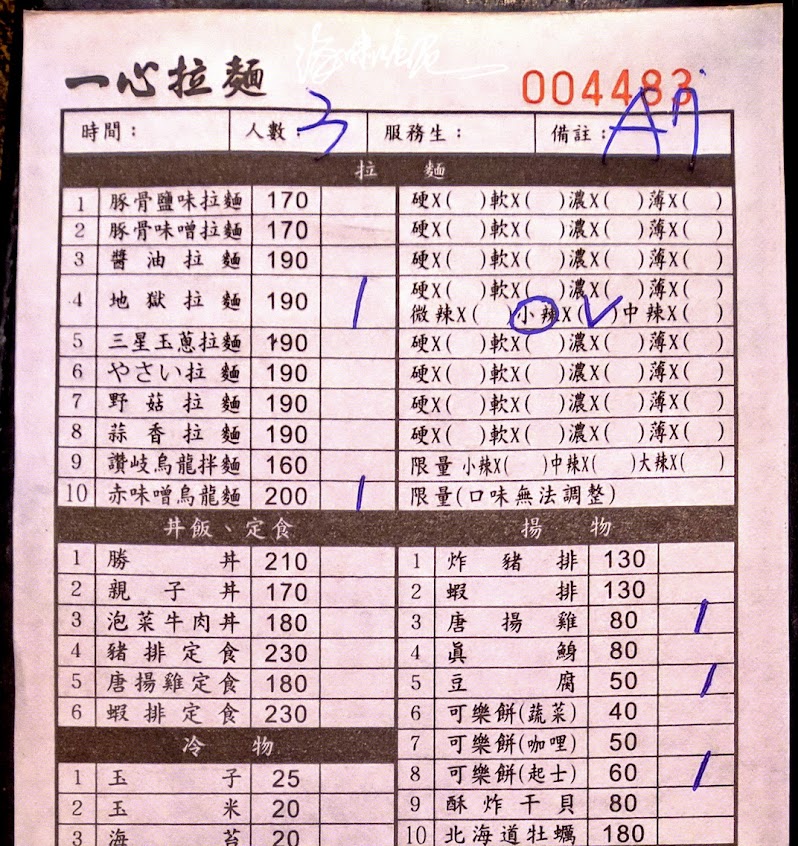 一心拉麵
004483
時間： 人數：3 服務生： 備註：A7
拉麵
1 豚骨鹽味拉麵 170 硬X( )軟X( )濃X( )薄X( )
2 豚骨味噌拉麵 170 硬X( )軟X( )濃X( )薄X( )
3 醬油拉麵 190 硬X( )軟X( )濃X( )薄X( )
4 地獄拉麵 190 1 硬X( )軟X( )濃X( )薄X( )
微辣X( )小辣X(✓)中辣X( )
5 三星玉蔥拉麵 190 硬X( )軟X( )濃X( )薄X( )
6 やさい拉麵 190 硬X( )軟X( )濃X( )薄X( )
7 野菇拉麵 190 硬X( )軟X( )濃X( )薄X( )
8 蒜香拉麵 190 硬X( )軟X( )濃X( )薄X( )
9 讚岐烏龍拌麵 160 限量 小辣X( )中辣X( )大辣X( )
10 赤味噌烏龍麵 200 1 限量(口味無法調整)
丼飯、定食
1 勝丼 210
2 親子丼 170
3 泡菜牛肉丼 180
4 豬排定食 230
5 唐揚雞定食 180
6 蝦排定食 230
冷物
1 玉子 25
2 玉米 20
3 海苔 20
揚物
1 炸豬排 130
2 蝦排 130
3 唐揚雞 80 1
4 真鯓 80
5 豆腐 50 1
6 可樂餅(蔬菜) 40
7 可樂餅(咖哩) 50
8 可樂餅(起士) 60 1
9 酥炸干貝 80
10 北海道牡蠣 180